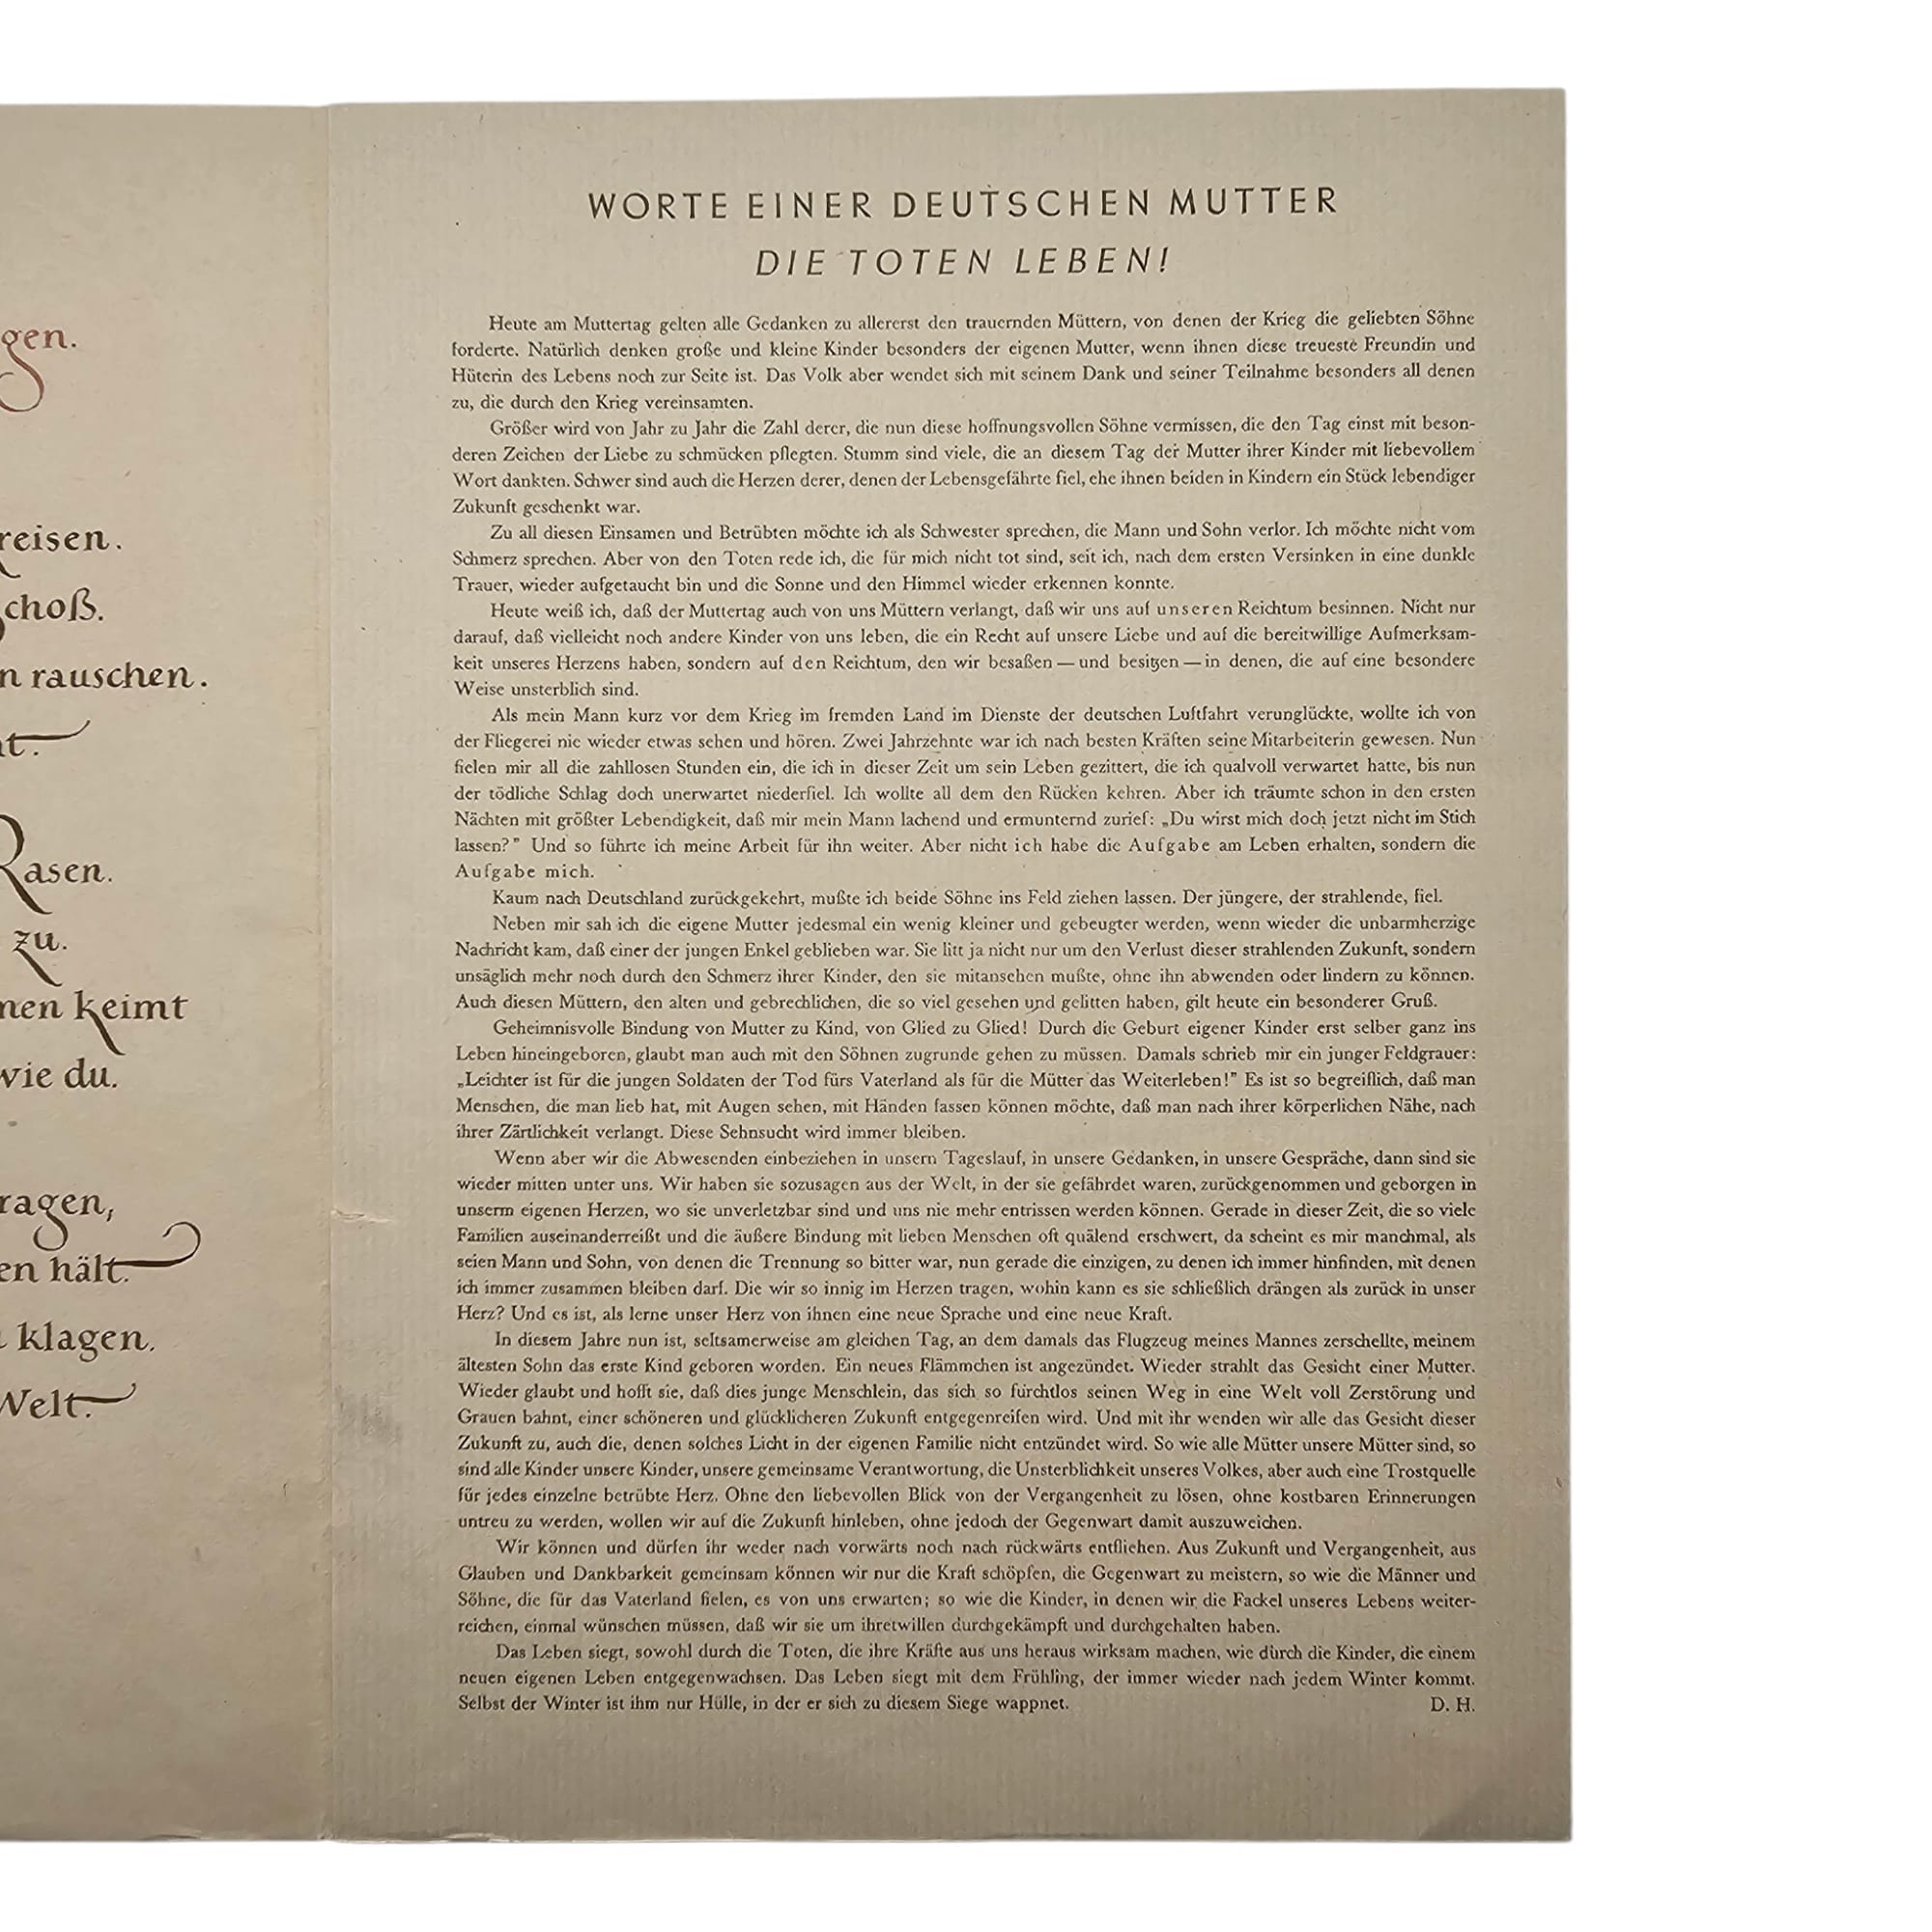 gen.
reisen.
choß.
n rauschen.
t.
Rasen.
zu.
men keimt
wie du.
ragen,
en hält.
klagen.
Welt.
WORTE EINER DEUTSCHEN MUTTER
DIE TOTEN LEBEN!
Heute am Muttertag gelten alle Gedanken zu allererst den trauernden Müttern, von denen der Krieg die geliebten Söhne
forderte. Natürlich denken große und kleine Kinder besonders der eigenen Mutter, wenn ihnen diese treueste Freundin und
Hüterin des Lebens noch zur Seite ist. Das Volk aber wendet sich mit seinem Dank und seiner Teilnahme besonders all denen
zu, die durch den Krieg vereinsamten.
Größer wird von Jahr zu Jahr die Zahl derer, die nun diese hoffnungsvollen Söhne vermissen, die den Tag einst mit beson-
deren Zeichen der Liebe zu schmücken pflegten. Stumm sind viele, die an diesem Tag der Mutter ihrer Kinder mit liebevollem
Wort dankten. Schwer sind auch die Herzen derer, denen der Lebensgefährte fiel, ehe ihnen beiden in Kindern ein Stück lebendiger
Zukunft geschenkt war.
Zu all diesen Einsamen und Betrübten möchte ich als Schwester sprechen, die Mann und Sohn verlor. Ich möchte nicht vom
Schmerz sprechen. Aber von den Toten rede ich, die für mich nicht tot sind, seit ich, nach dem ersten Versinken in eine dunkle
Trauer, wieder aufgetaucht bin und die Sonne und den Himmel wieder erkennen konnte.
Heute weiß ich, daß der Muttertag auch von uns Müttern verlangt, daß wir uns auf unseren Reichtum besinnen. Nicht nur
darauf, daß vielleicht noch andere Kinder von uns leben, die ein Recht auf unsere Liebe und auf die bereitwillige Aufmerksam-
keit unseres Herzens haben, sondern auf den Reichtum, den wir besaßen — und besitzen — in denen, die auf eine besondere
Weise unsterblich sind.
Als mein Mann kurz vor dem Krieg im fremden Land im Dienste der deutschen Luftfahrt verunglückte, wollte ich von
der Fliegerei nie wieder etwas sehen und hören. Zwei Jahrzehnte war ich nach besten Kräften seine Mitarbeiterin gewesen. Nun
fielen mir all die zahllosen Stunden ein, die ich in dieser Zeit um sein Leben gezittert, die ich qualvoll verwartet hatte, bis nun
der tödliche Schlag doch unerwartet niederfiel. Ich wollte all dem den Rücken kehren. Aber ich träumte schon in den ersten
Nächten mit größter Lebendigkeit, daß mir mein Mann lachend und ermunternd zurief: „Du wirst mich doch jetzt nicht im Stich
lassen?" Und so führte ich meine Arbeit für ihn weiter. Aber nicht ich habe die Aufgabe am Leben erhalten, sondern die
Aufgabe mich.
Kaum nach Deutschland zurückgekehrt, mußte ich beide Söhne ins Feld ziehen lassen. Der jüngere, der strahlende, fiel.
Neben mir sah ich die eigene Mutter jedesmal ein wenig kleiner und gebeugter werden, wenn wieder die unbarmherzige
Nachricht kam, daß einer der jungen Enkel geblieben war. Sie litt ja nicht nur um den Verlust dieser strahlenden Zukunft, sondern
unsäglich mehr noch durch den Schmerz ihrer Kinder, den sie mitansehen mußte, ohne ihn abwenden oder lindern zu können.
Auch diesen Müttern, den alten und gebrechlichen, die so viel gesehen und gelitten haben, gilt heute ein besonderer Gruß.
Geheimnisvolle Bindung von Mutter zu Kind, von Glied zu Glied! Durch die Geburt eigener Kinder erst selber ganz ins
Leben hineingeboren, glaubt man auch mit den Söhnen zugrunde gehen zu müssen. Damals schrieb mir ein junger Feldgrauer:
„Leichter ist für die jungen Soldaten der Tod fürs Vaterland als für die Mütter das Weiterleben!" Es ist so begreiflich, daß man
Menschen, die man lieb hat, mit Augen sehen, mit Händen fassen können möchte, daß man nach ihrer körperlichen Nähe, nach
ihrer Zärtlichkeit verlangt. Diese Sehnsucht wird immer bleiben.
Wenn aber wir die Abwesenden einbeziehen in unsern Tageslauf, in unsere Gedanken, in unsere Gespräche, dann sind sie
wieder mitten unter uns. Wir haben sie sozusagen aus der Welt, in der sie gefährdet waren, zurückgenommen und geborgen in
unserm eigenen Herzen, wo sie unverletzbar sind und uns nie mehr entrissen werden können. Gerade in dieser Zeit, die so viele
Familien auseinanderreißt und die äußere Bindung mit lieben Menschen oft quälend erschwert, da scheint es mir manchmal, als
seien Mann und Sohn, von denen die Trennung so bitter war, nun gerade die einzigen, zu denen ich immer hinfinden, mit denen
ich immer zusammen bleiben darf. Die wir so innig im Herzen tragen, wohin kann es sie schließlich drängen als zurück in unser
Herz? Und es ist, als lerne unser Herz von ihnen eine neue Sprache und eine neue Kraft.
In diesem Jahre nun ist, seltsamerweise am gleichen Tag, an dem damals das Flugzeug meines Mannes zerschellte, meinem
ältesten Sohn das erste Kind geboren worden. Ein neues Flämmchen ist angezündet. Wieder strahlt das Gesicht einer Mutter.
Wieder glaubt und hofft sie, daß dies junge Menschlein, das sich so furchtlos seinen Weg in eine Welt voll Zerstörung und
Grauen bahnt, einer schöneren und glücklicheren Zukunft entgegenreifen wird. Und mit ihr wenden wir alle das Gesicht dieser
Zukunft zu, auch die, denen solches Licht in der eigenen Familie nicht entzündet wird. So wie alle Mütter unsere Mütter sind, so
sind alle Kinder unsere Kinder, unsere gemeinsame Verantwortung, die Unsterblichkeit unseres Volkes, aber auch eine Trostquelle
für jedes einzelne betrübte Herz. Ohne den liebevollen Blick von der Vergangenheit zu lösen, ohne kostbaren Erinnerungen
untreu zu werden, wollen wir auf die Zukunft hinleben, ohne jedoch der Gegenwart damit auszuweichen.
Wir können und dürfen ihr weder nach vorwärts noch nach rückwärts entfliehen. Aus Zukunft und Vergangenheit, aus
Glauben und Dankbarkeit gemeinsam können wir nur die Kraft schöpfen, die Gegenwart zu meistern, so wie die Männer und
Söhne, die für das Vaterland fielen, es von uns erwarten; so wie die Kinder, in denen wir die Fackel unseres Lebens weiter-
reichen, einmal wünschen müssen, daß wir sie um ihretwillen durchgekämpft und durchgehalten haben.
Das Leben siegt, sowohl durch die Toten, die ihre Kräfte aus uns heraus wirksam machen, wie durch die Kinder, die einem
neuen eigenen Leben entgegenwachsen. Das Leben siegt mit dem Frühling, der immer wieder nach jedem Winter kommt.
Selbst der Winter ist ihm nur Hülle, in der er sich zu diesem Siege wappnet. D. H.